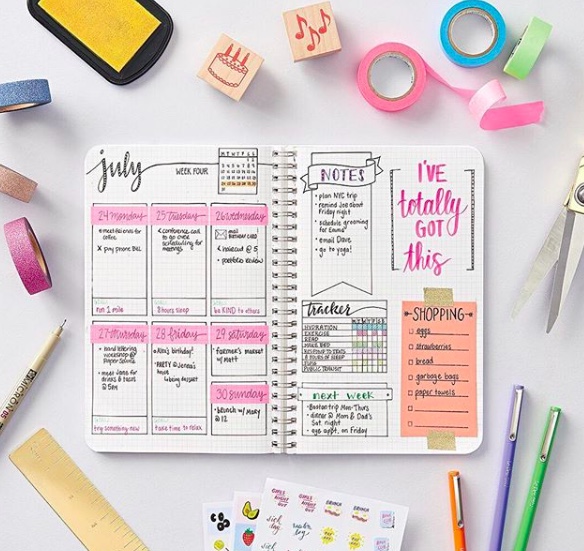 july
WEEK FOUR
M T W T F S S
24 monday
meet Jas ems for
coffee
X pay phone BILL
run 1 mile
25 tuesday
conference call
to go over
scheduling for
meetings
8 hours sleep
26 wednesday
mail
BIRTHDAY CARD
haircut @ 5
portfolio review
be KIND to others
27 thursday
hand lettering
workshop @
Paper Source
meet Jane for
drinks & tacos
@ 5pm
try something new
28 friday
Alex's birthday!
PARTY @ Jenea's
house
bring dessert
take time to relax
29 saturday
farmer's market
w/ Matt
30 sunday
brunch w/ Mary
@ 12
NOTES
• plan NYC trip
• remind Joe about
Friday night
• schedule grooming
for Emma
• email Dave
• go to yoga!
I'VE
totally
GOT
this
tracker
M T W T F S S
HYDRATION
EXERCISE
READ
MAKE BED
RESPOND TO TEXTS
8 HOURS OF SLEEP
PUBLIC TRANSIT
next week
• Boston trip Mon-Thurs
• dinner @ Mom & Dad's
Sat. night
• eye appt. on Friday
SHOPPING
eggs
strawberries
bread
garbage bags
paper towels
MICRON 05